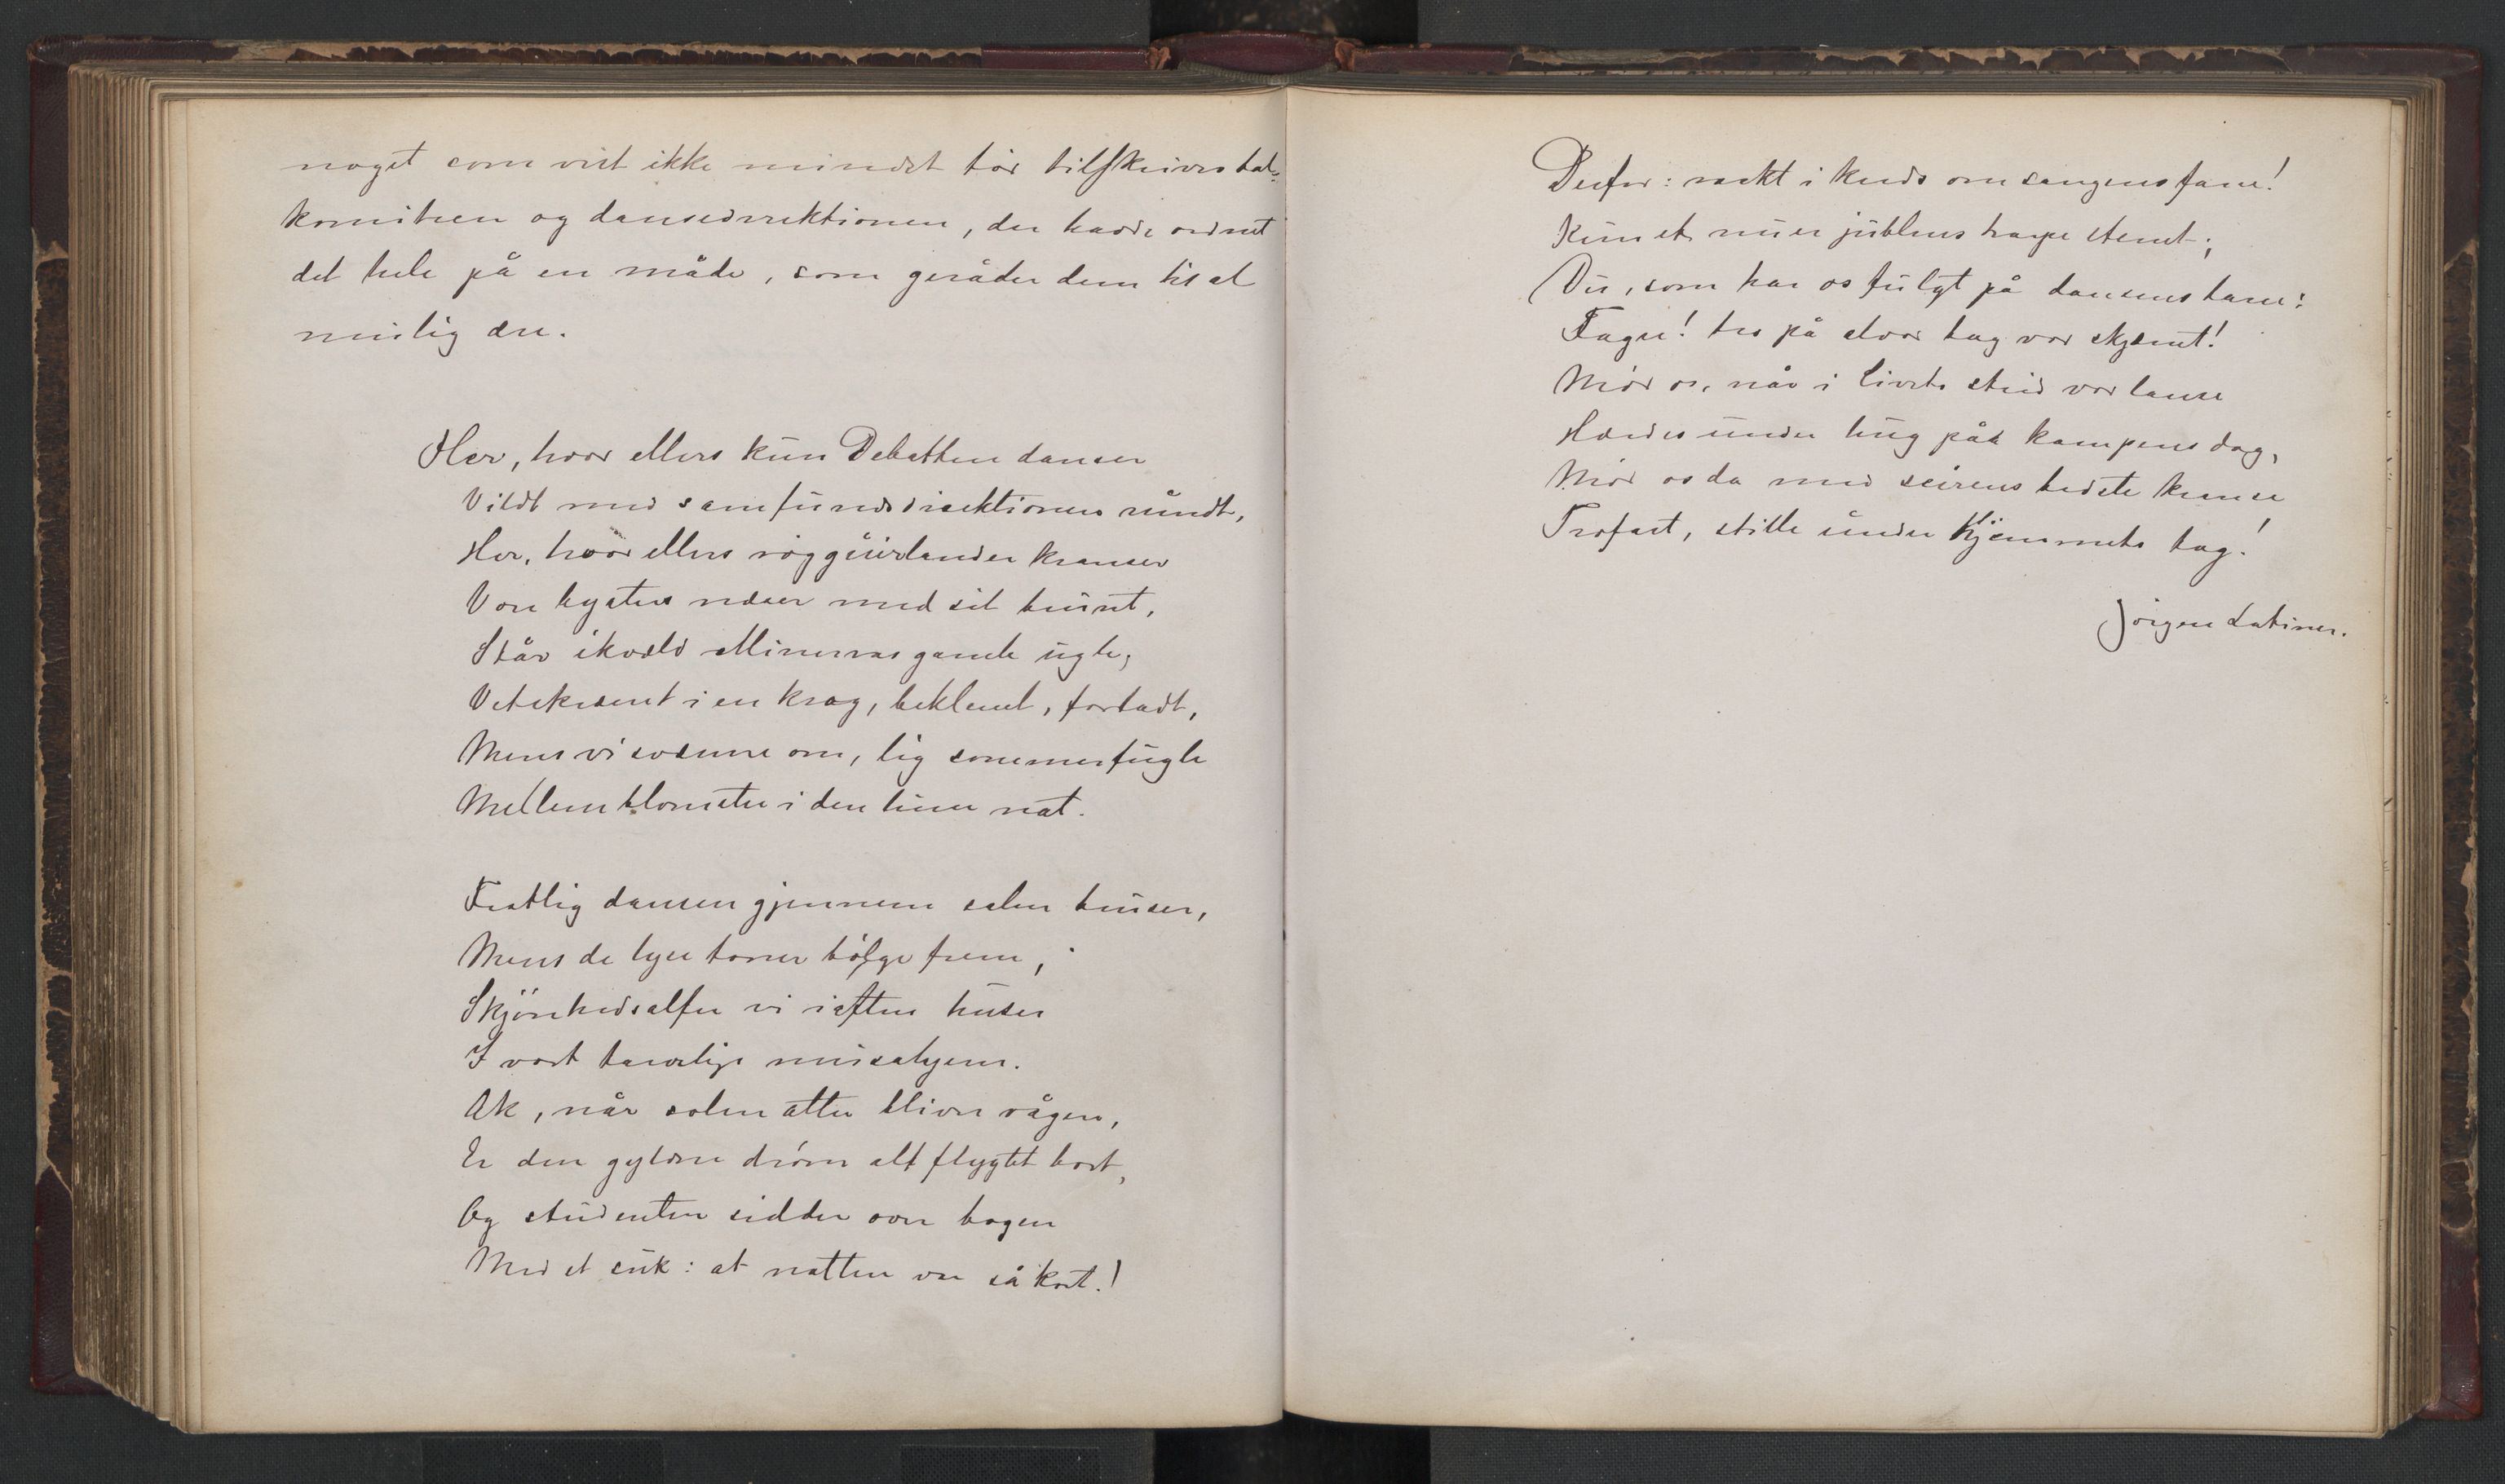 noget som vist ikke mindst bør tilskrives bal-
komiteen og dansedirektionen, der havde ordnet
det hele på en måde, som geråder dem til al
mulig ære.
Her, hvor ellers kun Debatten danser
Vildt med samfundsdirektionen rundt,
Her, hvor ellers røgguirlander kranser
Vore bysters næser med sit bundt,
Står ikvæld Minervas gamle ugle,
Vetskræmt i en krog, beklemt, forladt,
Mens vi sværme om, lig sommerfugle
Mellem blomster i den lune nat.
Festlig dansen gjennem salen bruser,
Mens de lyse toner bølge frem,
Skjønhedsalfer vi iaften huser
I vort tarvelige musahjem.
Ak, når solen atter bliver vågen,
Er den gyldne drøm alt flygtet bort,
Og studenten sidder over bogen
Med et suk: at natten var så kort!
Derfor: rækt i kreds om sangens fane!
Kun et nu er jublens harpe stemt;
Du, som har os fulgt på dansens bane:
Fagre! tro på alvor bag vor skjæmt!
Mød os, når i livets strid vor lanse
Hærdes under hug på kampens dag,
Mød os da med seirens bedste kranse
Trofast, stille under hjemmets tag!
Jørgen Latiner.